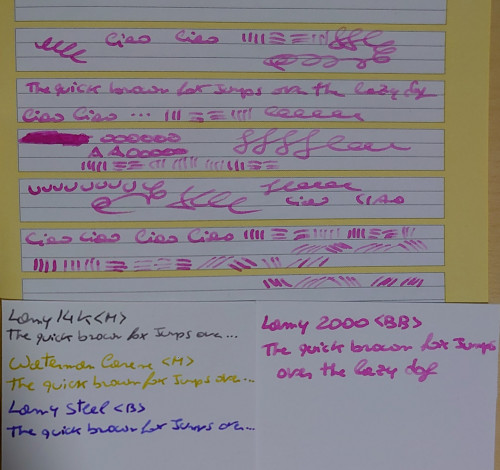 Ciao Ciao
The quick brown fox Jumps over the lazy dog
Ciao Ciao ...
Ciao Ciao
Ciao Ciao Ciao Ciao
Lamy 14k <M>
The quick brown fox Jumps over...
Waterman Carene <M>
The quick brown fox Jumps over...
Lamy Steel <B>
The quick brown fox Jumps over...
Lamy 2000 <BB>
The quick brown fox Jumps
over the lazy dog